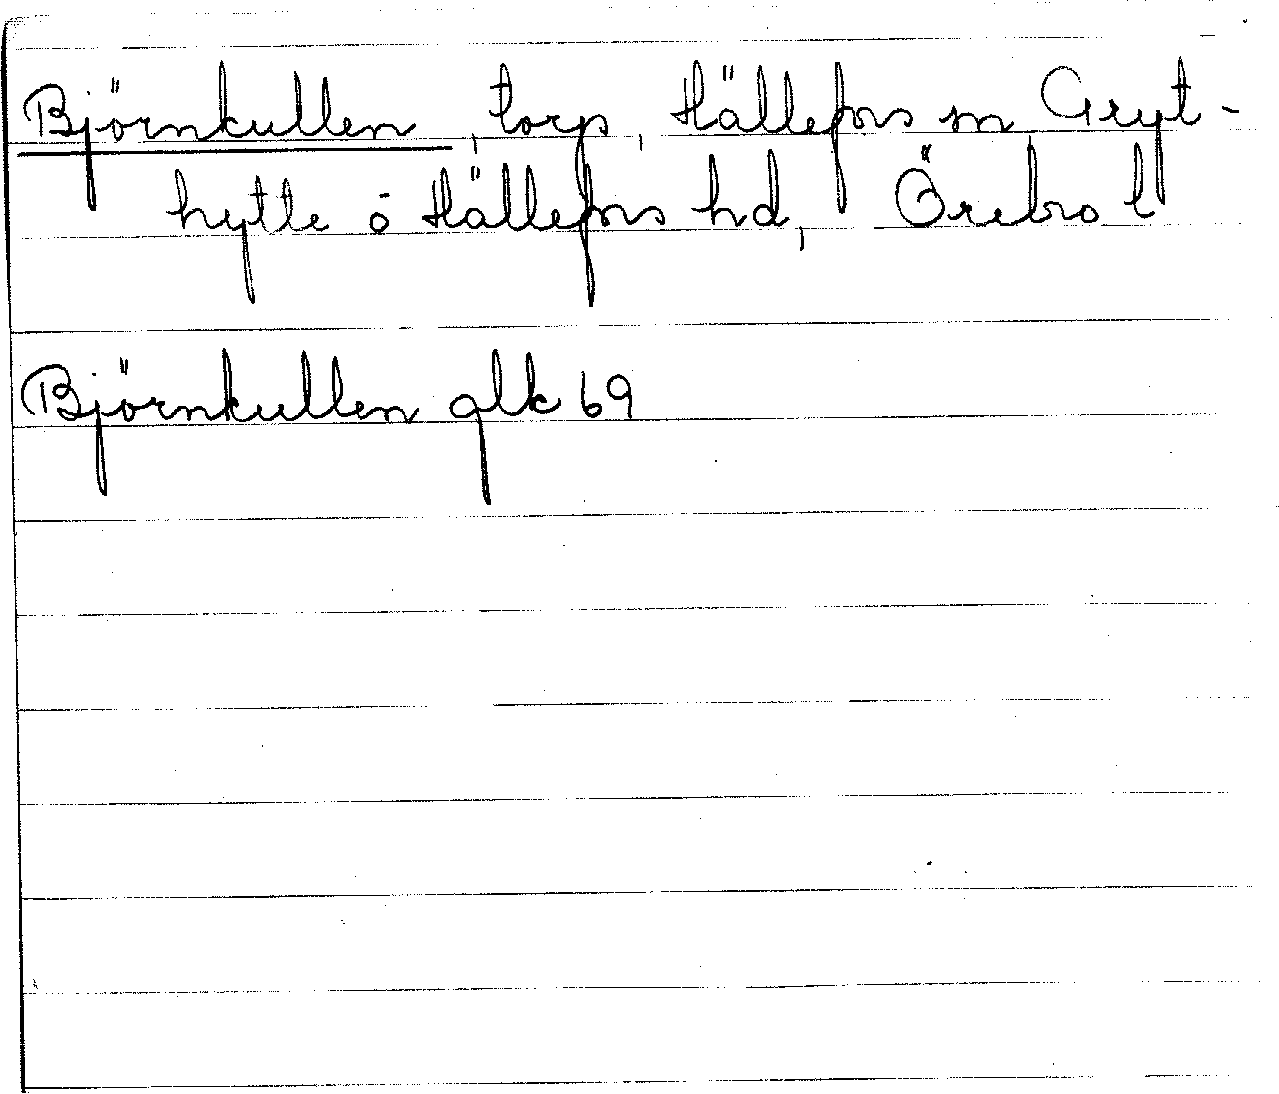 Björnkullen, torp, Hällefors sn Gryt-
hytte o Hällefors hd, Örebro l
Björnkullen glk 69